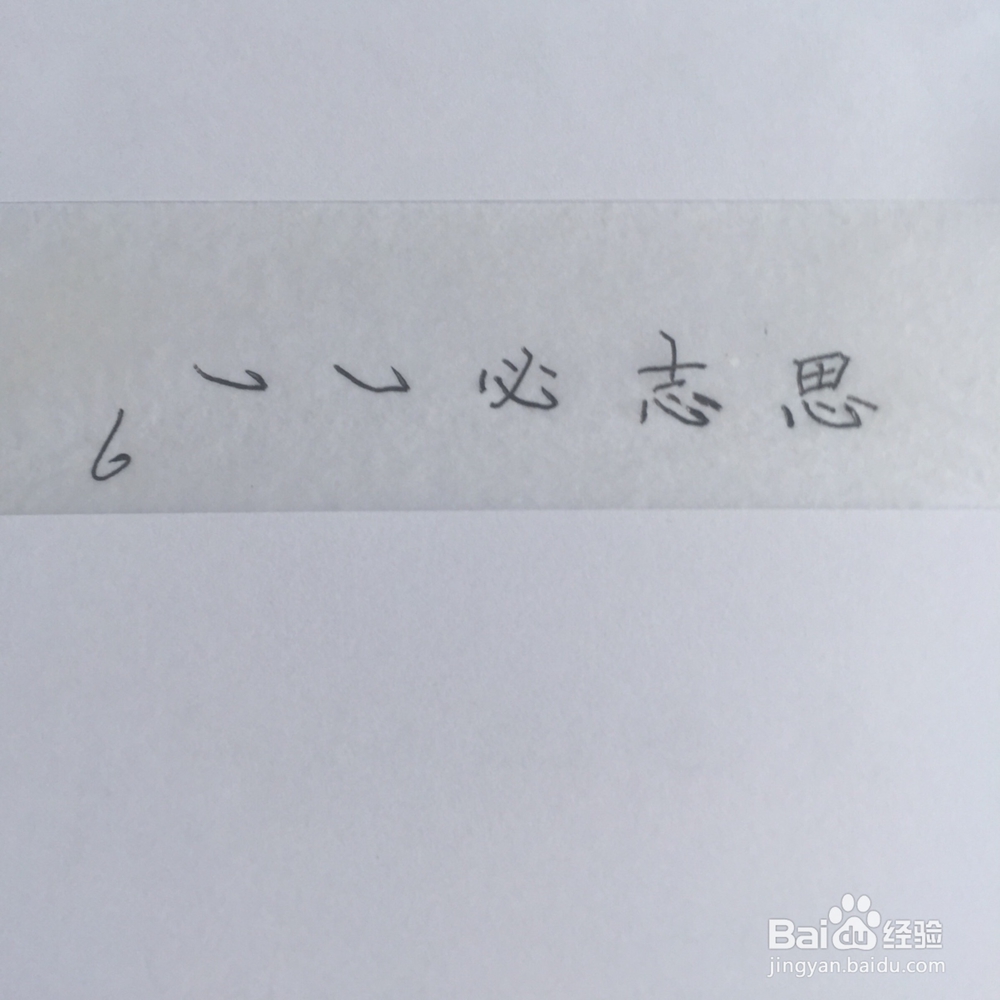 6 ㇃ ㇃ 必 志 思
Baidu 经验
jingyan.baidu.com